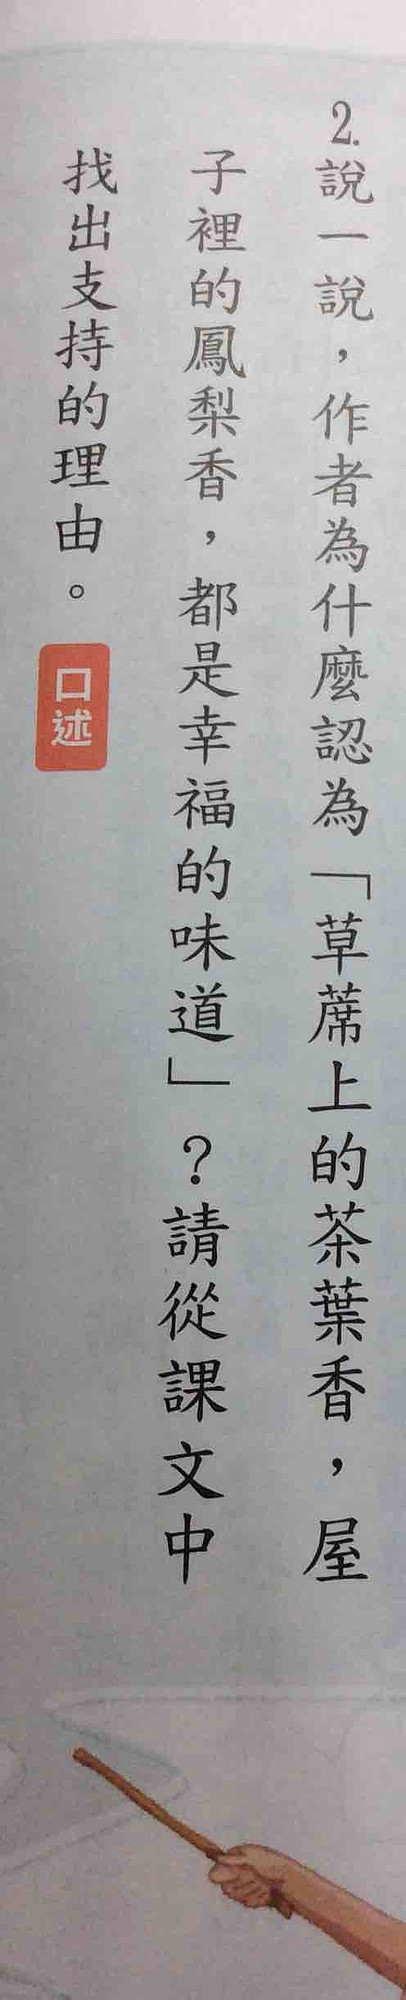 2.說一說，作者為什麼認為「草蓆上的茶葉香，屋
子裡的鳳梨香，都是幸福的味道」？請從課文中
找出支持的理由。口述